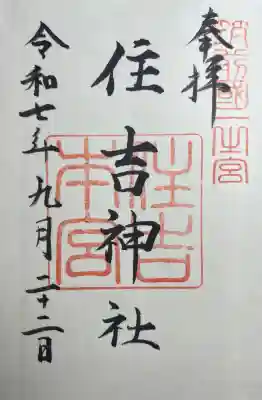 奉拝
筑前國一之宮
住吉神社
住吉本宮
令和七年九月二十二日